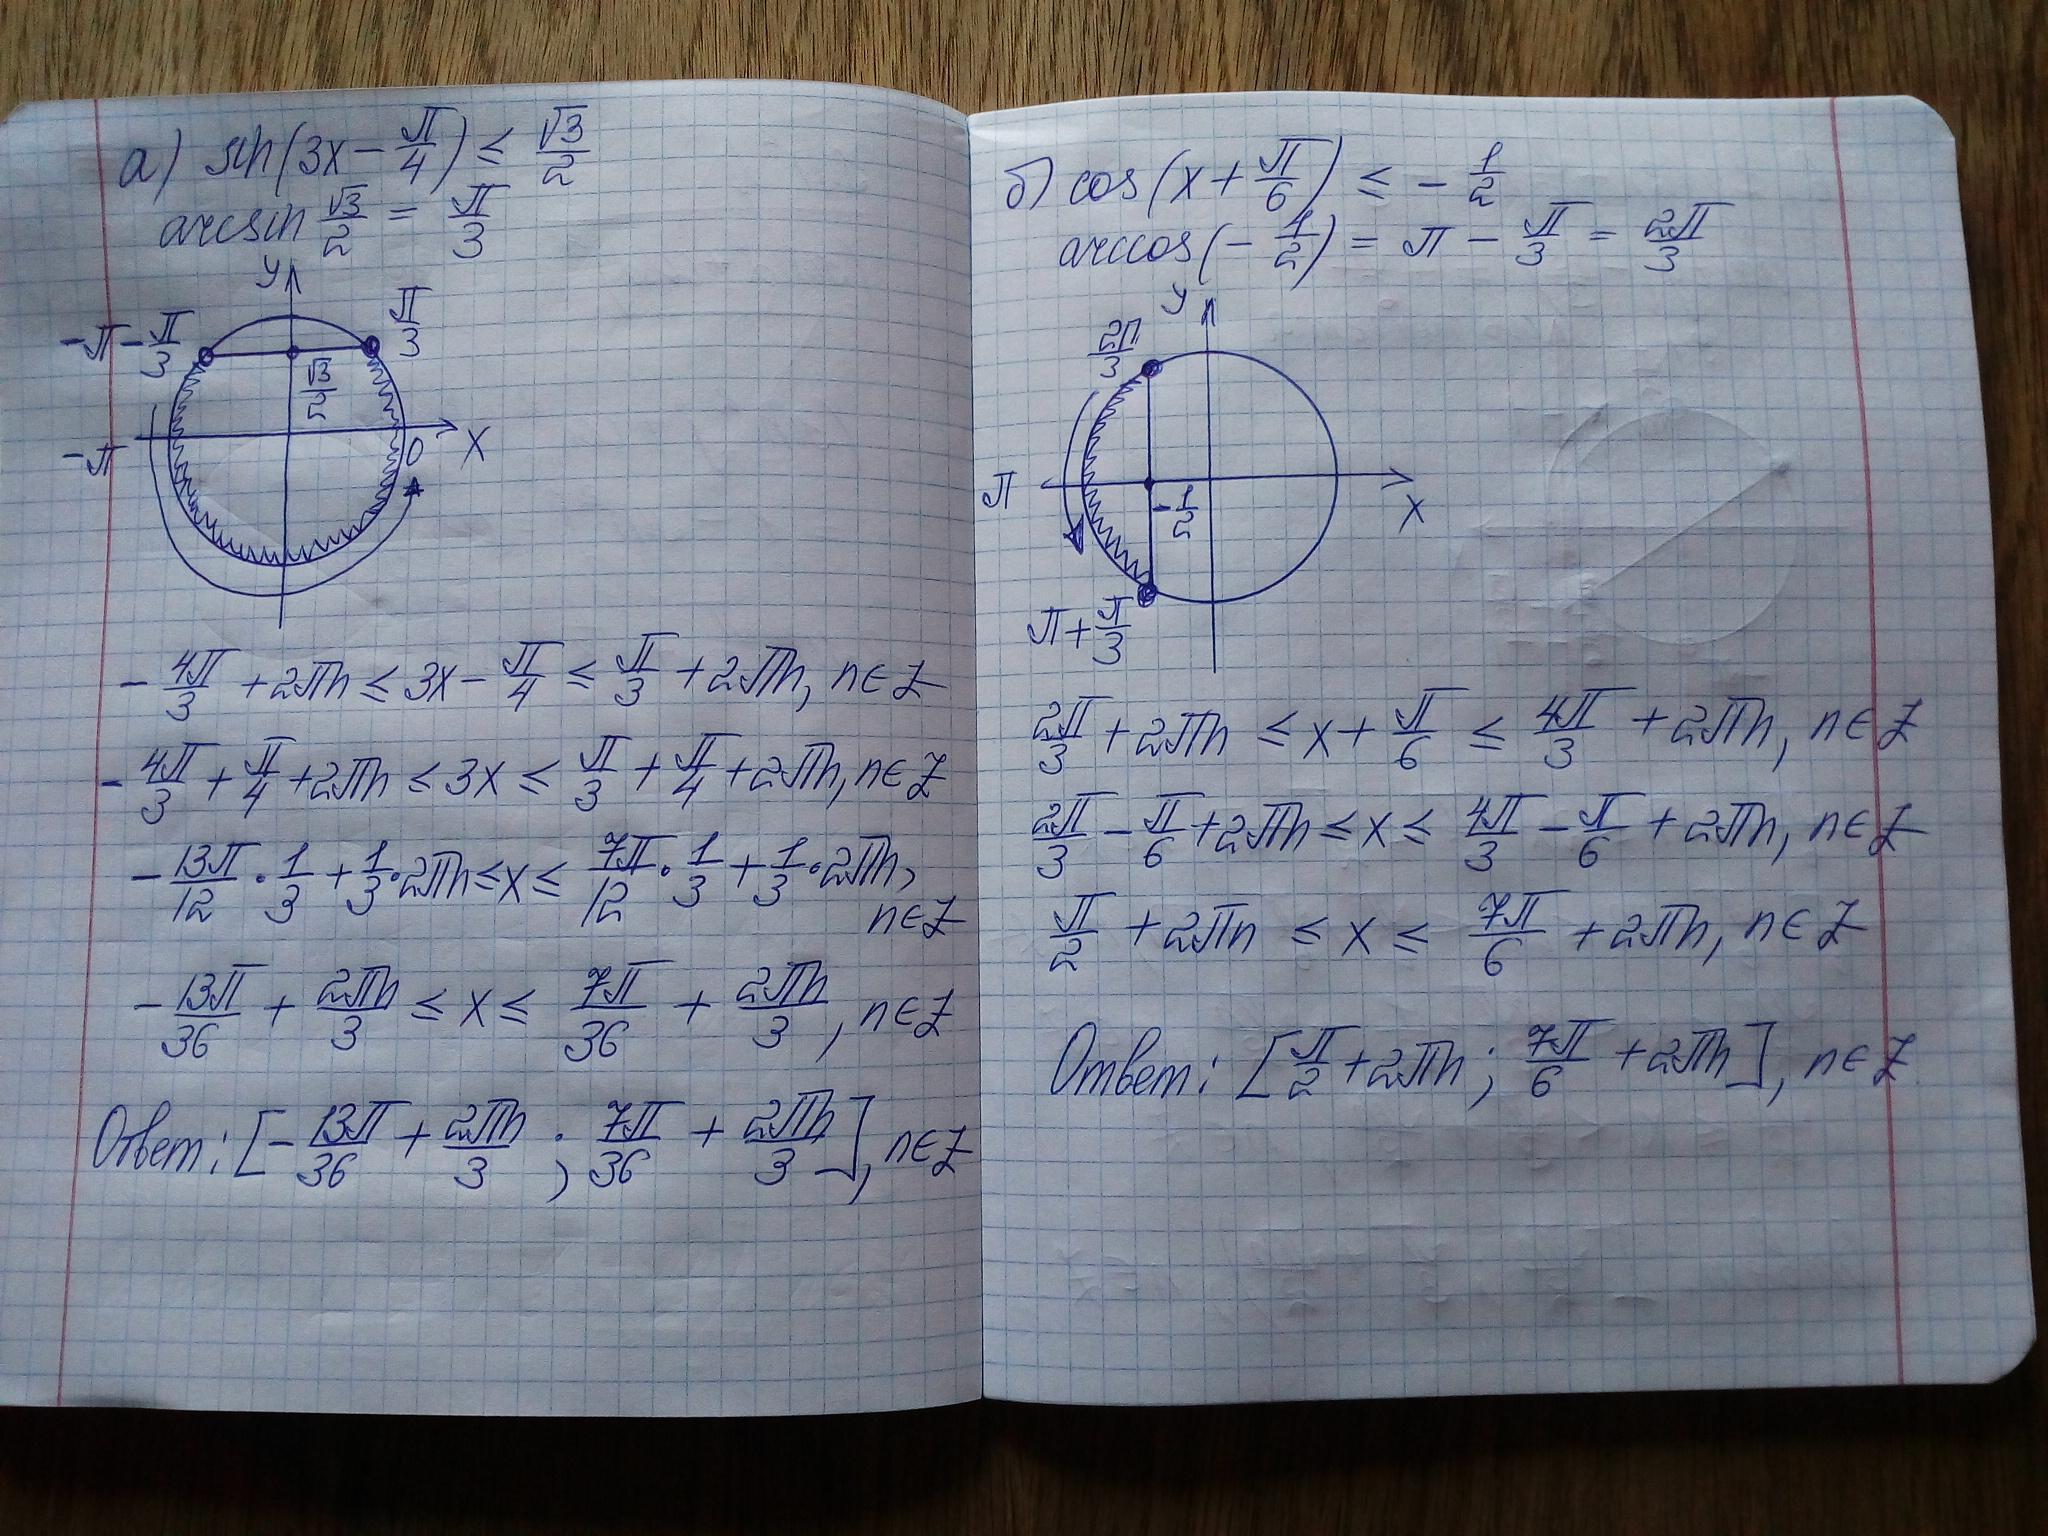 а) sin(3x - π/4) ≤ √3/2
arcsin √3/2 = π/3
y
-π - π/3
π/3
√3/2
-π
0
x
-4π/3 + 2πn ≤ 3x - π/4 ≤ π/3 + 2πn, n∈Z
-4π/3 + π/4 + 2πn ≤ 3x ≤ π/3 + π/4 + 2πn, n∈Z
-13π/12 · 1/3 + 1/3 · 2πn ≤ x ≤ 7π/12 · 1/3 + 1/3 · 2πn,
n∈Z
-13π/36 + 2πn/3 ≤ x ≤ 7π/36 + 2πn/3, n∈Z
Ответ: [-13π/36 + 2πn/3; 7π/36 + 2πn/3], n∈Z
б) cos(x + π/6) ≤ -1/2
arccos(-1/2) = π - π/3 = 2π/3
y
2π/3
π
-1/2
x
π + π/3
2π/3 + 2πn ≤ x + π/6 ≤ 4π/3 + 2πn, n∈Z
2π/3 - π/6 + 2πn ≤ x ≤ 4π/3 - π/6 + 2πn, n∈Z
π/2 + 2πn ≤ x ≤ 7π/6 + 2πn, n∈Z
Ответ: [π/2 + 2πn; 7π/6 + 2πn], n∈Z